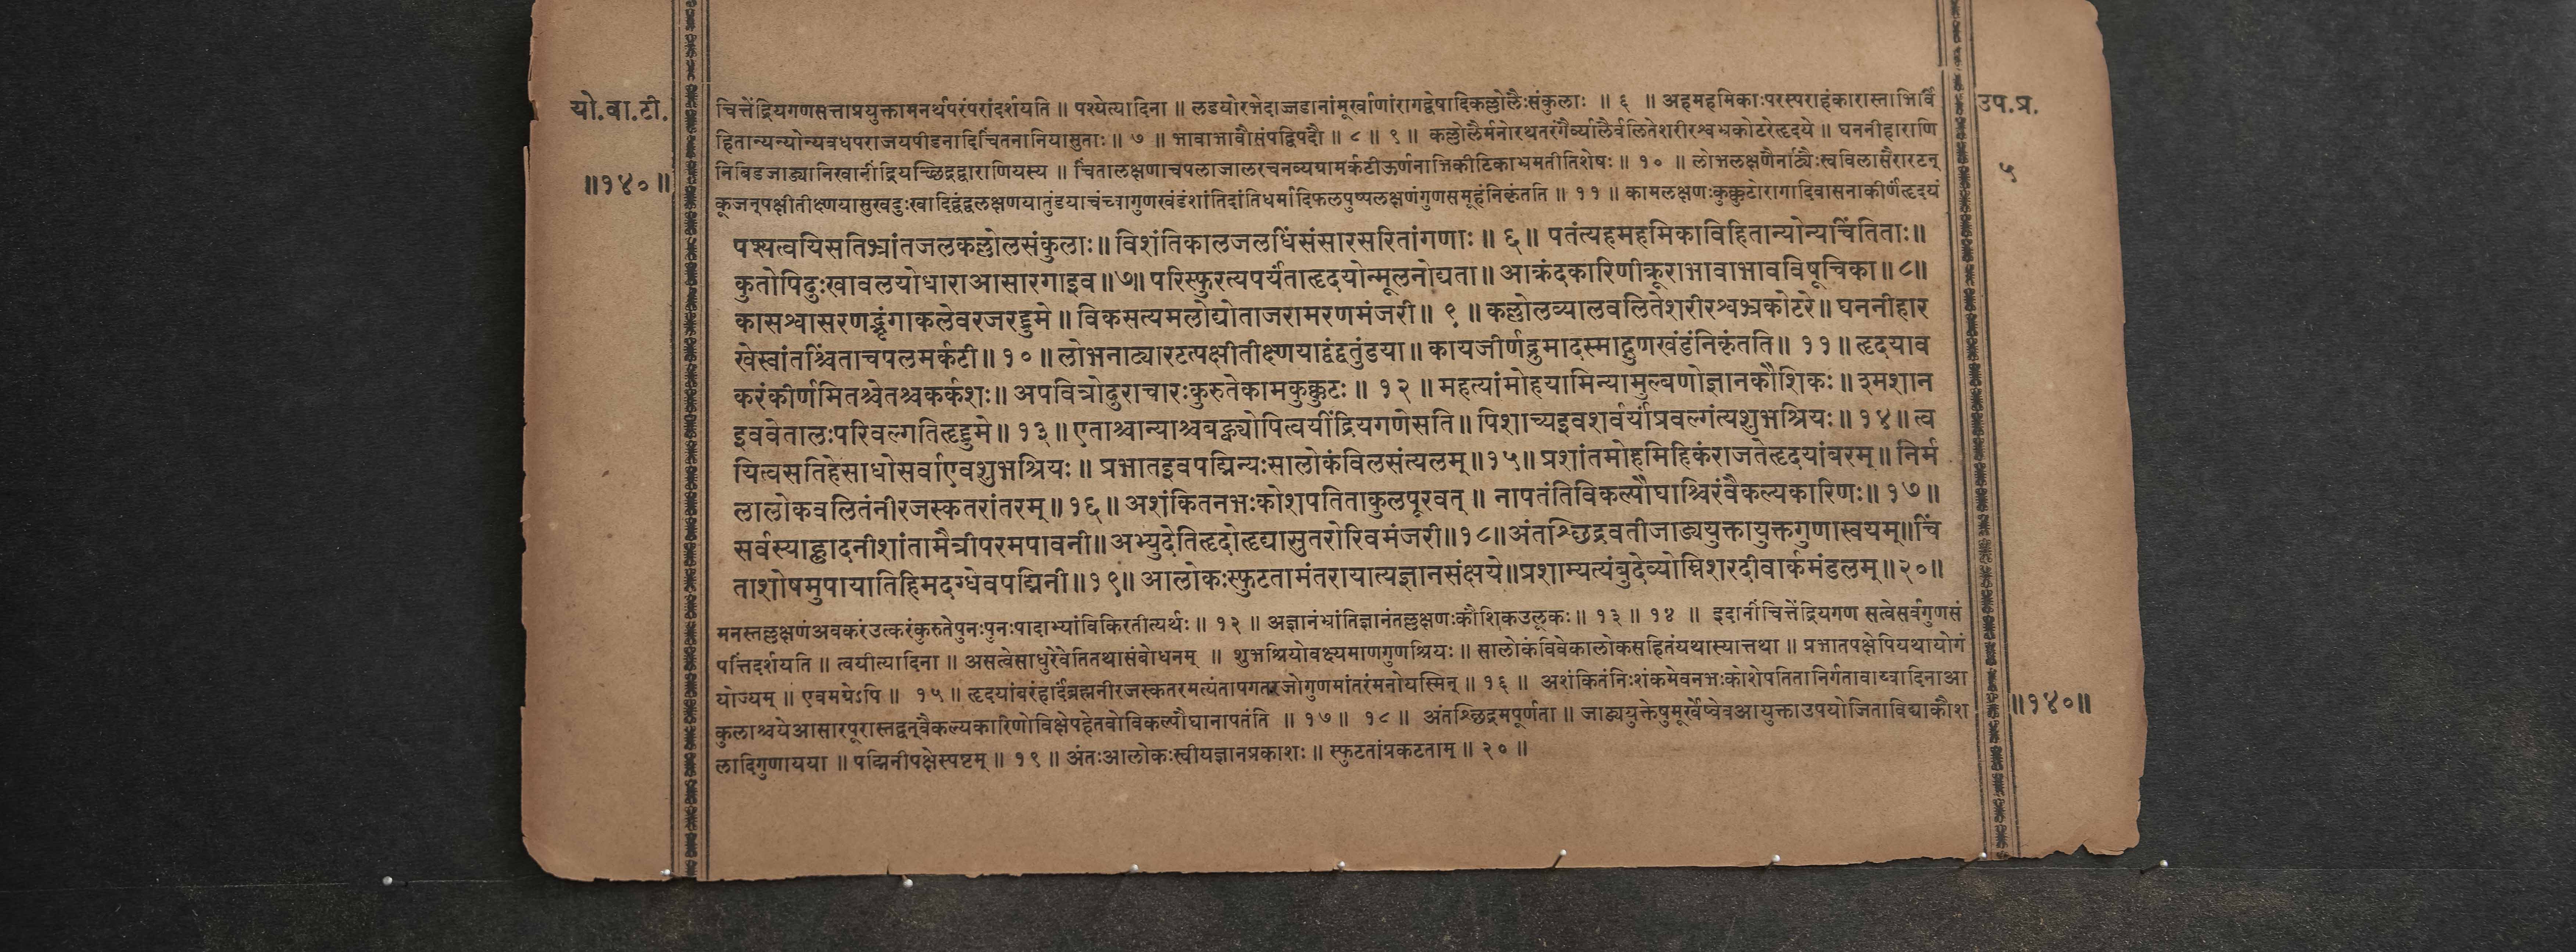 यो.वा.टी.
॥१४०॥
उप.प्र.
५
चित्तेंद्रियगणसत्ताप्रयुक्तामनर्थपरंपरांदर्शयति ॥ पश्येत्यादिना ॥ लडयोरभेदाज्जडानांमूर्खाणांरागद्वेषादिकल्लोलैःसंकुलाः ॥ ६ ॥ अहमहमिकाःपरस्पराहंकारास्ताभिर्वि
हितान्यन्योन्यवधपराजयपीडनादिचिंतनानियासुताः ॥ ७ ॥ भावाभावौसंपद्विपदौ ॥ ८ ॥ ९ ॥ कल्लोलैर्मनोरथतरंगैर्व्यालैर्वलितेशरीरश्वभ्रकोटरेहृदये ॥ घननीहाराणि
निबिडजाड्यानिखानींद्रियच्छिद्रद्वाराणियस्य ॥ चिंतालक्षणाचपलाजालरचनव्यग्रामर्कटीऊर्णनाभिकीटिकाभ्रमतीतिशेषः ॥ १० ॥ लोभलक्षणैर्नाट्यैःस्वविलासैरारटन्
कूजन्पक्षीतीक्ष्णयासुखदुःखादिद्वंद्वलक्षणयातुंडयाचंच्वागुणखंडंशांतिदांतिधर्मादिफलपुष्पलक्षणंगुणसमूहंनिकृंतति ॥ ११ ॥ कामलक्षणःकुक्कुटोरागादिवासनाकीर्णंहृदयं
पश्यत्वयिसतिभ्रांतजलकल्लोलसंकुलाः॥ विशंतिकालजलधिंसंसारसरितांगणाः ॥ ६॥ पतंत्यहमहमिकाविहितान्योन्यचिंतिताः॥
कुतोपिदुःखावलयोधाराआसारगाइव॥७॥ परिस्फुरत्यपर्यंताहृदयोन्मूलनोद्यता॥ आक्रंदकारिणीक्रूराभावाभावविषूचिका॥८॥
कासश्वासरणद्भृंगाकलेवरजरद्द्रुमे॥ विकसत्यमलोद्योताजरामरणमंजरी॥ ९ ॥ कल्लोलव्यालवलितेशरीरश्वभ्रकोटरे॥ घननीहार
खेस्वांतश्चिंताचपलमर्कटी॥ १०॥ लोभनाट्यारटत्पक्षीतीक्ष्णयाद्वंद्वतुंडया॥ कायजीर्णद्रुमादस्माद्गुणखंडंनिकृंतति॥ ११॥ हृदयाव
करंकीर्णमितश्चेतश्चकर्कशः॥ अपवित्रोदुराचारःकुरुतेकामकुक्कुटः ॥ १२ ॥ महत्यांमोहयामिन्यामुल्बणोज्ञानकौशिकः॥ श्मशान
इववेतालःपरिवल्गतिहृद्द्रुमे॥ १३॥ एताश्चान्याश्चबह्व्योपित्वयींद्रियगणेसति॥ पिशाच्यइवशर्वर्यांप्रवल्गंत्यशुभश्रियः॥१४॥ त्व
यित्वसतिहेसाधोसर्वाएवशुभश्रियः॥ प्रभातइवपद्मिन्यःसालोकंविलसंत्यलम्॥१५॥ प्रशांतमोहमिहिकंराजतेहृदयांबरम्॥ निर्म
लालोकवलितंनीरजस्कतरांतरम्॥ १६॥ अशंकितनभःकोशपतिताकुलपूरवत् ॥ नापतंतिविकल्पौघाश्चिरंवैकल्यकारिणः॥ १७॥
सर्वस्याह्लादनीशांतामैत्रीपरमपावनी॥अभ्युदेतिहृदोहृद्यासुतरोरिवमंजरी॥१८॥अंतश्छिद्रवतीजाड्ययुक्तायुक्तगुणास्वयम्॥चिं
ताशोषमुपायातिहिमदग्धेवपद्मिनी॥१९॥ आलोकःस्फुटतामंतरायात्यज्ञानसंक्षये॥प्रशाम्यत्यंबुदेव्योम्निशरदीवार्कमंडलम्॥२०॥
मनस्तल्लक्षणंअवकरंउत्करंकुरुतेपुनःपुनःपादाभ्यांविकिरतीत्यर्थः ॥ १२ ॥ अज्ञानंभ्रांतिज्ञानंतल्लक्षणःकौशिकउलूकः॥ १३ ॥ १४ ॥ इदानींचित्तेंद्रियगण सत्वेसर्वगुणसं
पत्तिंदर्शयति ॥ त्वयीत्यादिना ॥ असत्वेसाधुरेवेतितथासंबोधनम् ॥ शुभश्रियोवक्ष्यमाणगुणश्रियः ॥ सालोकंविवेकालोकसहितंयथास्यात्तथा ॥ प्रभातपक्षेपियथायोगं
योज्यम् ॥ एवमग्रेऽपि ॥ १५ ॥ हृदयांबरंहार्दंब्रह्मनीरजस्कतरमत्यंतापगतरजोगुणमांतरंमनोयस्मिन् ॥ १६ ॥ अशंकितंनिःशंकमेवनभःकोशेपतितानिर्गतावाय्वादिनाआ
कुलाश्चयेआसारपूरास्तद्वन्वैकल्यकारिणोविक्षेपहेतवोविकल्पौघानापतंति ॥ १७ ॥ १८ ॥ अंतश्छिद्रमपूर्णता ॥ जाड्ययुक्तेषुमूर्खेष्वेवआयुक्ताउपयोजिताविद्याकौश
लादिगुणायया ॥ पद्मिनीपक्षेस्पष्टम् ॥ १९ ॥ अंतःआलोकःस्वीयज्ञानप्रकाशः ॥ स्फुटतांप्रकटताम् ॥ २० ॥
॥१४०॥